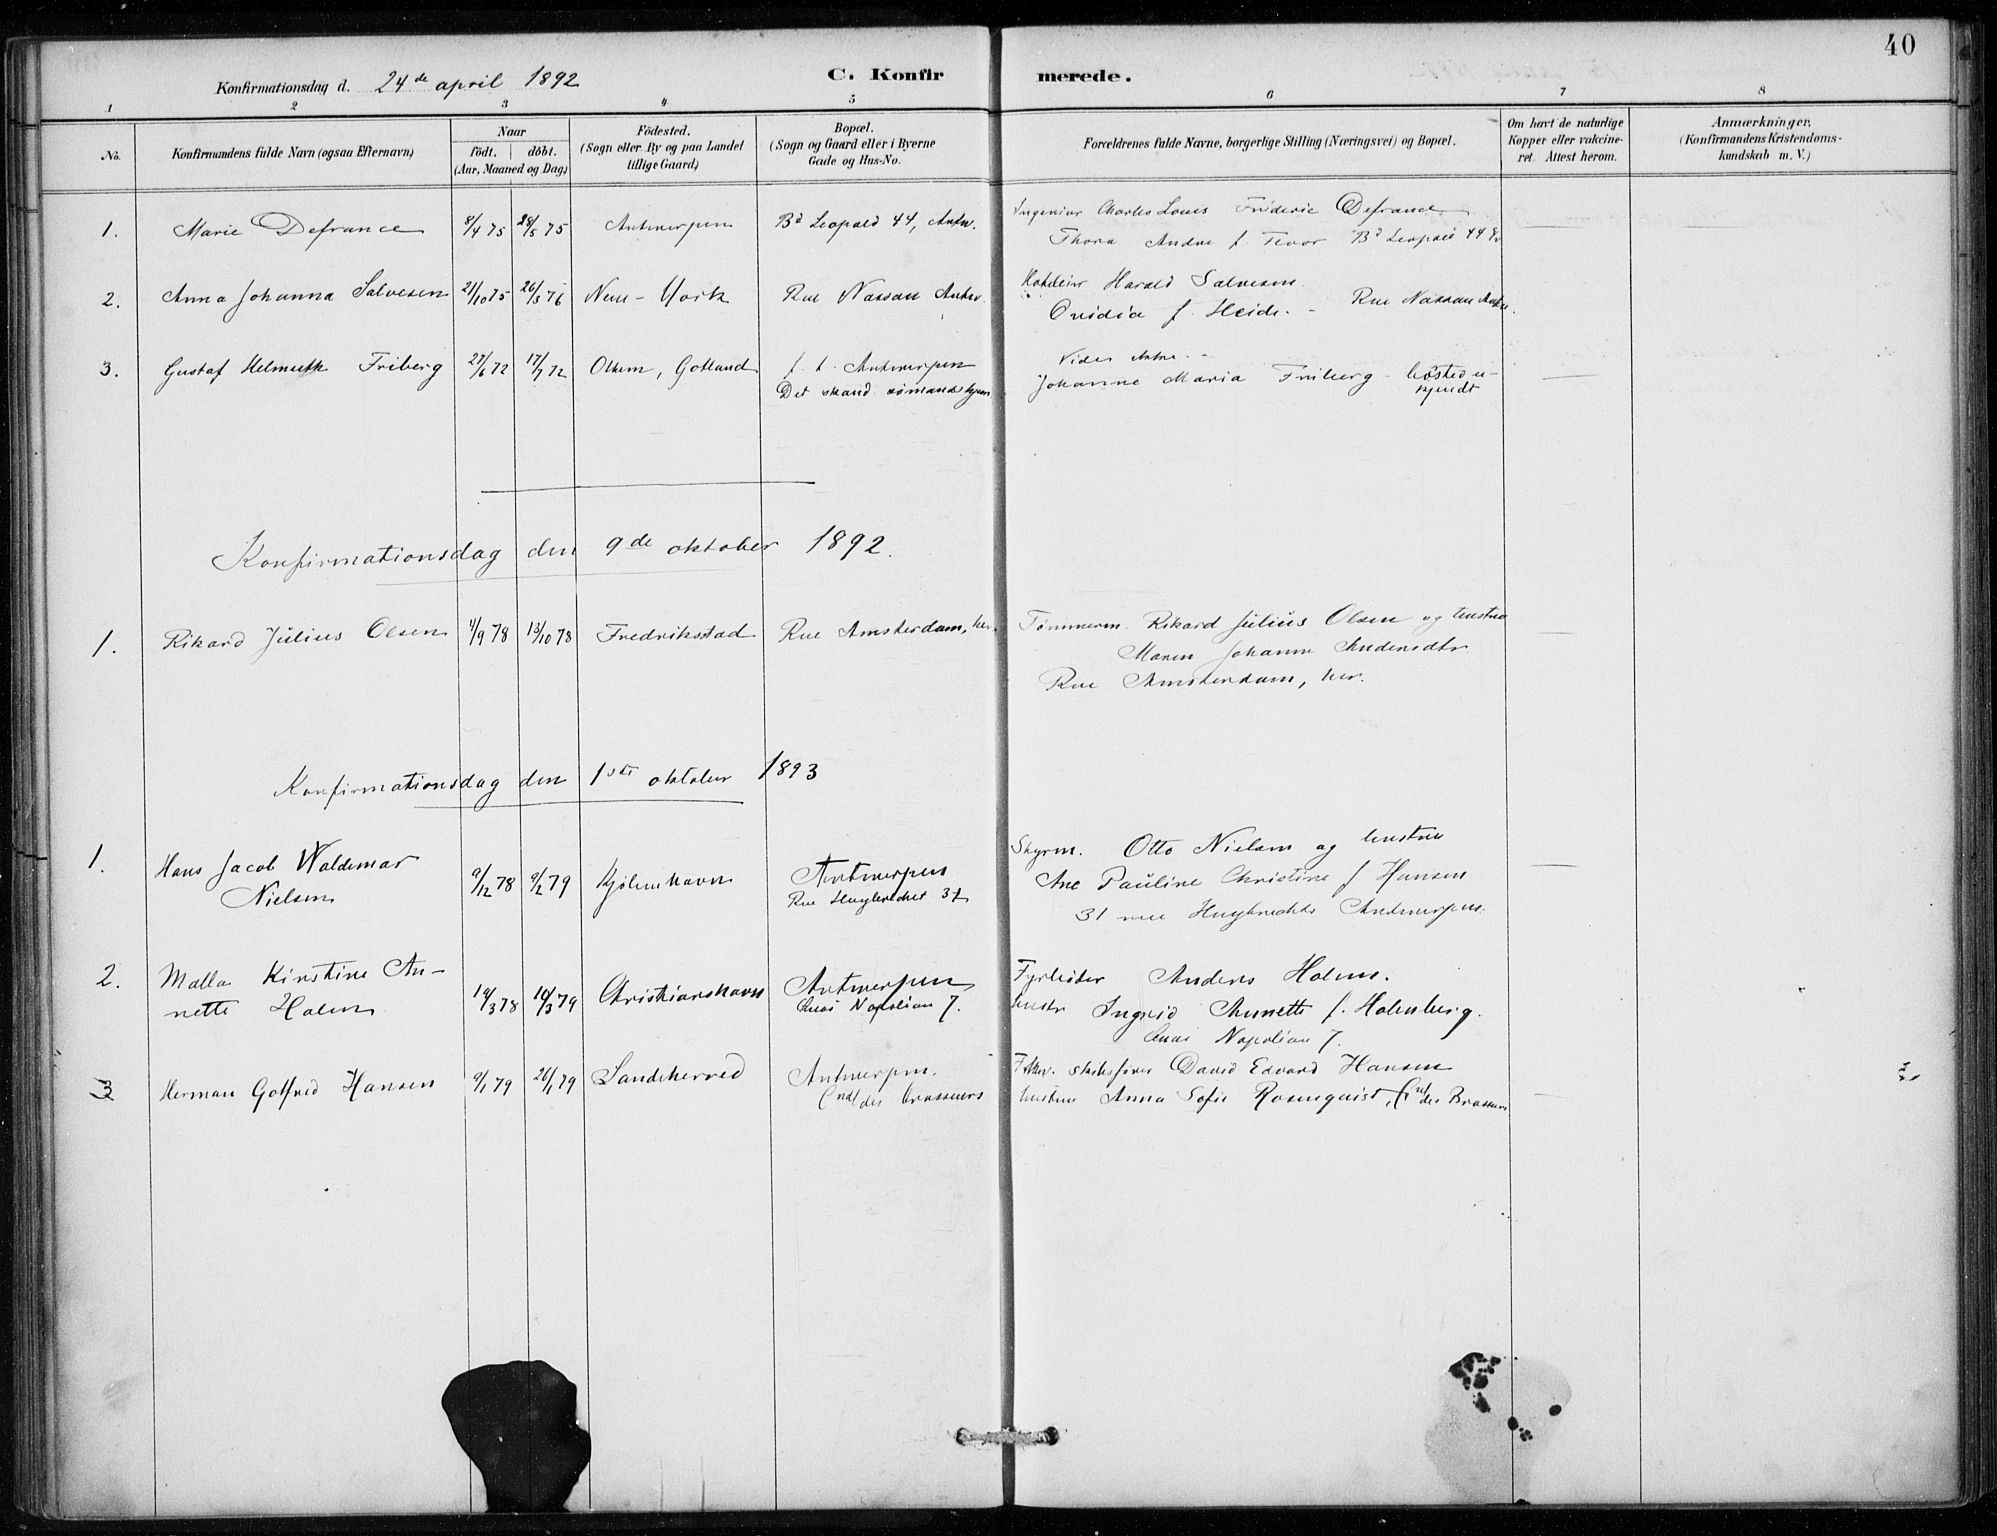 40
Konfirmationsdag d. 24de april 1892
C. Konfirmerede.
1 2 3 4 5 6 7 8
No.
Konfirmandens fulde Navn (ogsaa Efternavn)
Naar
födt. döbt.
(Aar, Maaned og Dag)
Födested.
(Sogn eller By og paa Landet
tillige Gaard)
Bopæl.
(Sogn og Gaard eller i Byerne
Gade og Hus-No.
Forældrenes fulde Navne, borgerlige Stilling (Næringsvei) og Bopæl.
Om havt de naturlige
Kopper eller vakcine-
ret. Attest herom.
Anmærkninger.
(Konfirmandens Kristendoms-
kundskab m. V.)
1. Marie Defrance 8/4 75 28/5 75 Antwerpen Bd Leopold 44, Antw. Ingeniør Charles Louis Fréderic Defrance
Thora Andre f. Bd Leopold 44
2. Anna Johanna Salvesen 21/10 75 26/3 76 New-York Rue Nassau Antw. Harald Salvesen
Ovidia f. Heide. - Rue Nassau Antw.
3. Gustaf Helmuth Friberg 27/6 72 17/7 72 Othem, Gotland f. t. Antwerpen
Det skand. sømandshjem
Johanne Maria Friberg - bosted u-
kjendt
Konfirmationsdag den 9de oktober 1892.
1. Rikard Julius Olsen 11/9 78 13/10 78 Fredrikstad Rue Amsterdam, her. Tømmerm. Rikard Julius Olsen og hustru
Maren Johanne Andersdtr
Rue Amsterdam, her.
Konfirmationsdag den 1ste oktober 1893
1. Hans Jacob Waldemar
Nielsen 9/12 78 9/2 79 Kjøbenhavn Antwerpen
Rue Huybrechts 31 Styrm. Otto Nielsen og hustru
Ane Pauline Christine f. Hansen
31 rue Huybrechts Antwerpen.
2. Malla Kirstine An-
nette Holm 19/3 78 Christianshavn Antwerpen
Quai Napoléon 7. Anders Holm.
hustr Ingrid Annette f. Holmberg.
Quai Napoléon 7.
3 Herman Gotfred Hansen 9/1 79 26/1 79 Sandeherred Antwerpen.
Cnl des brasseurs skibsfører David Edvard Hansen
hustru Anna Sofie Rosenquist, Cnl des Brasseurs